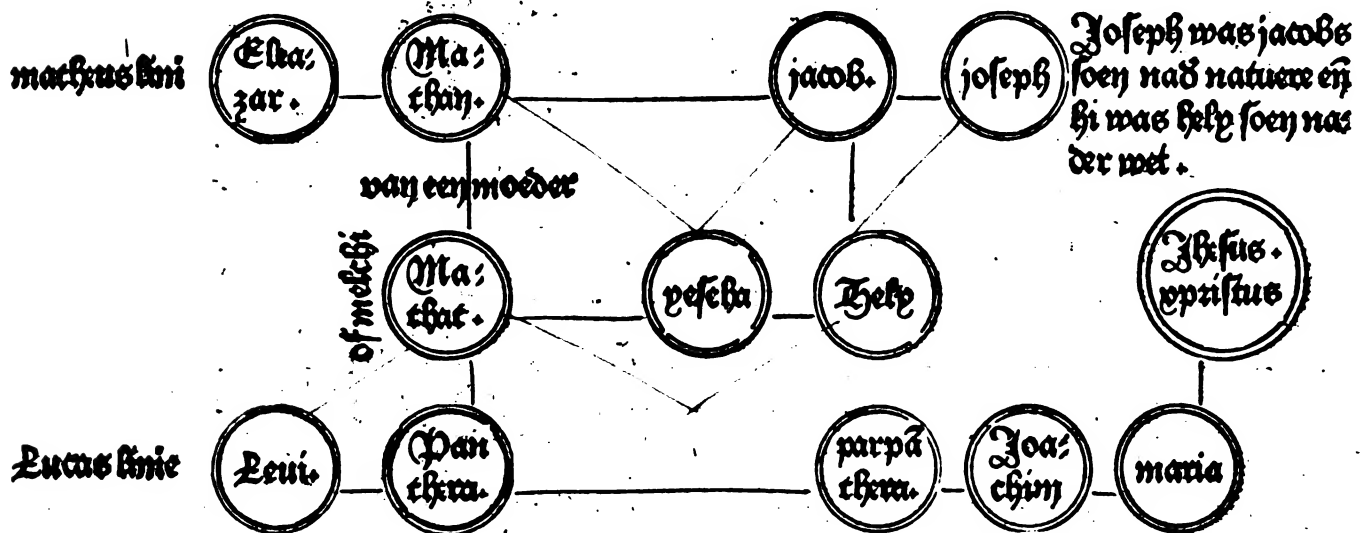 matheus lini
Elea⸗
zar.
Ma⸗
than.
jacob.
joseph
Joseph was jacobs
soen nad natuere en̄
hi was hely soen na⸗
der wet.
van een moeder
of melchi
Ma⸗
that.
yescha
Hely
Jhesus.
xpristus
Lucas linie
Leui.
Pan
thera.
parpā
thera.
Joa⸗
chim
maria